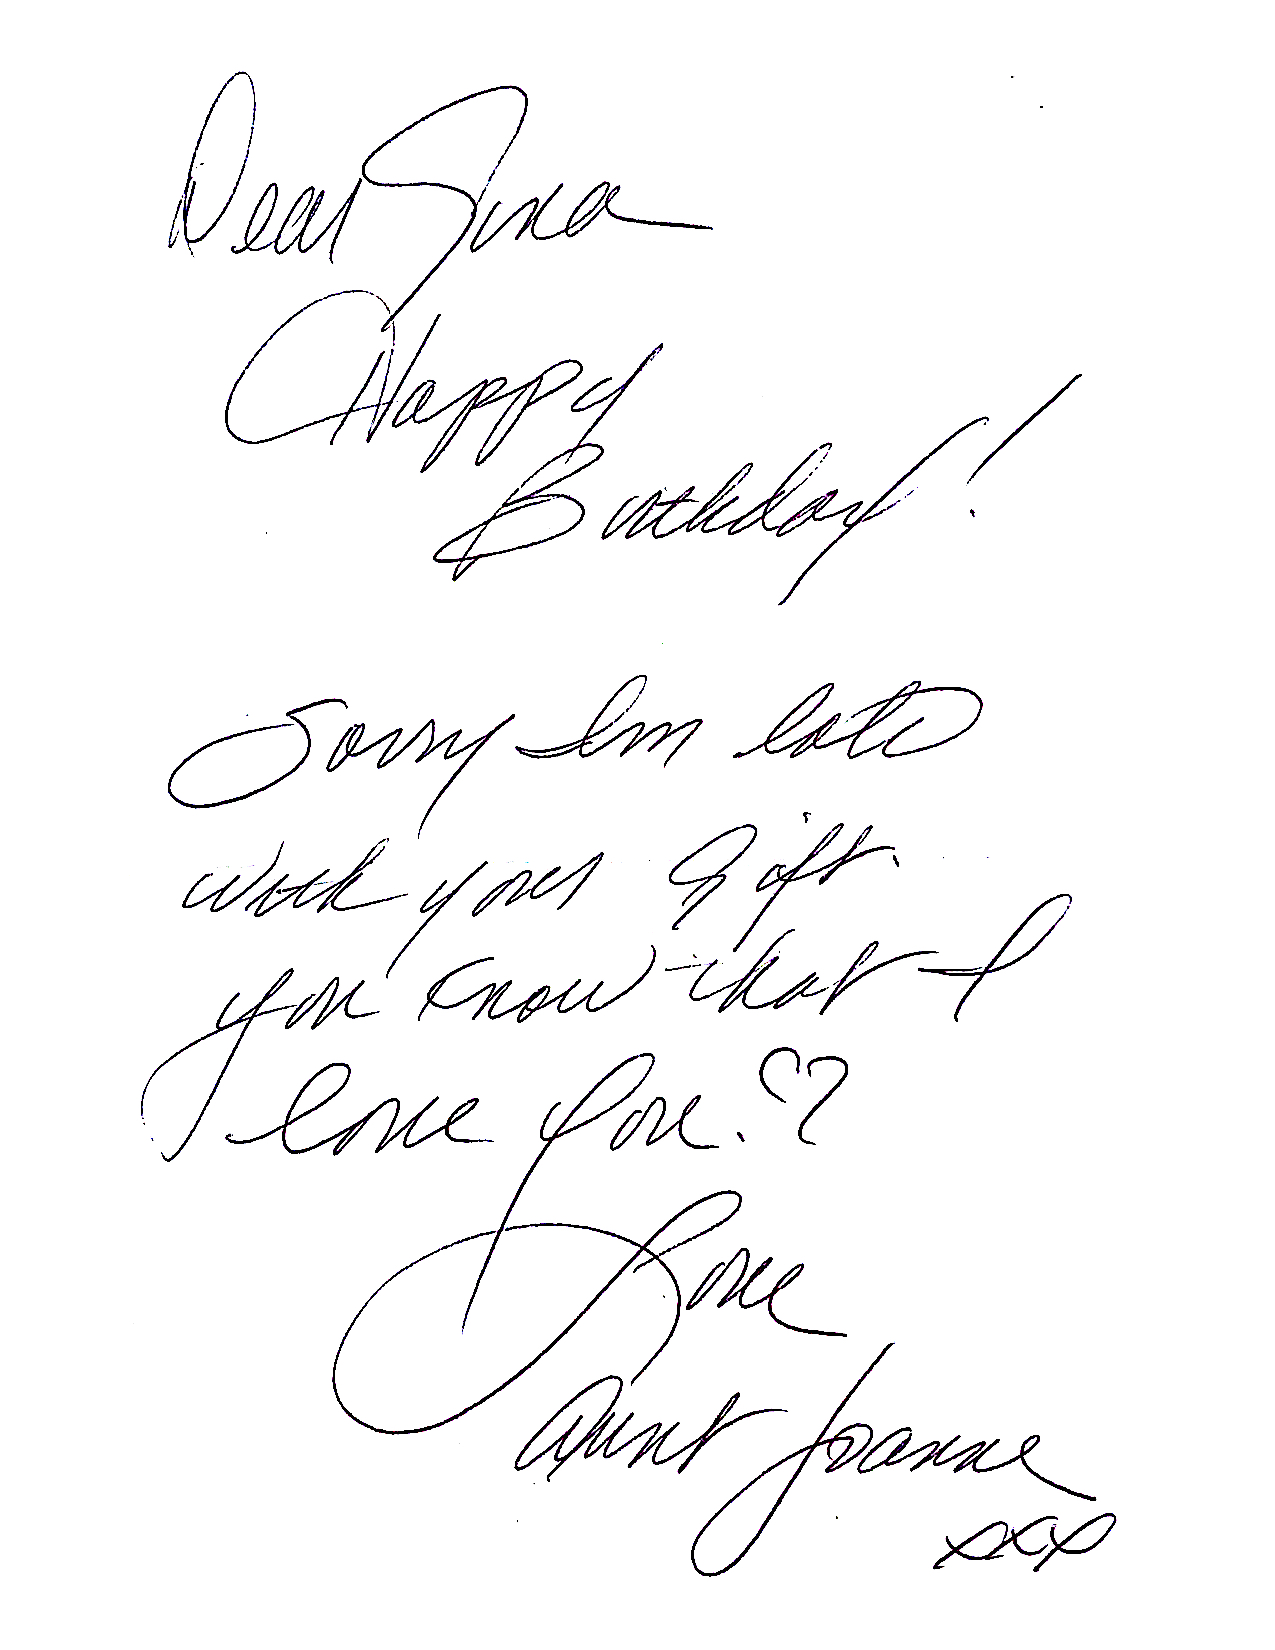 Dear Gina
Happy
Birthday!
Sorry Im late
with your gift.
you know that I
love you. ♡
Love
Aunt Joanne
xxx